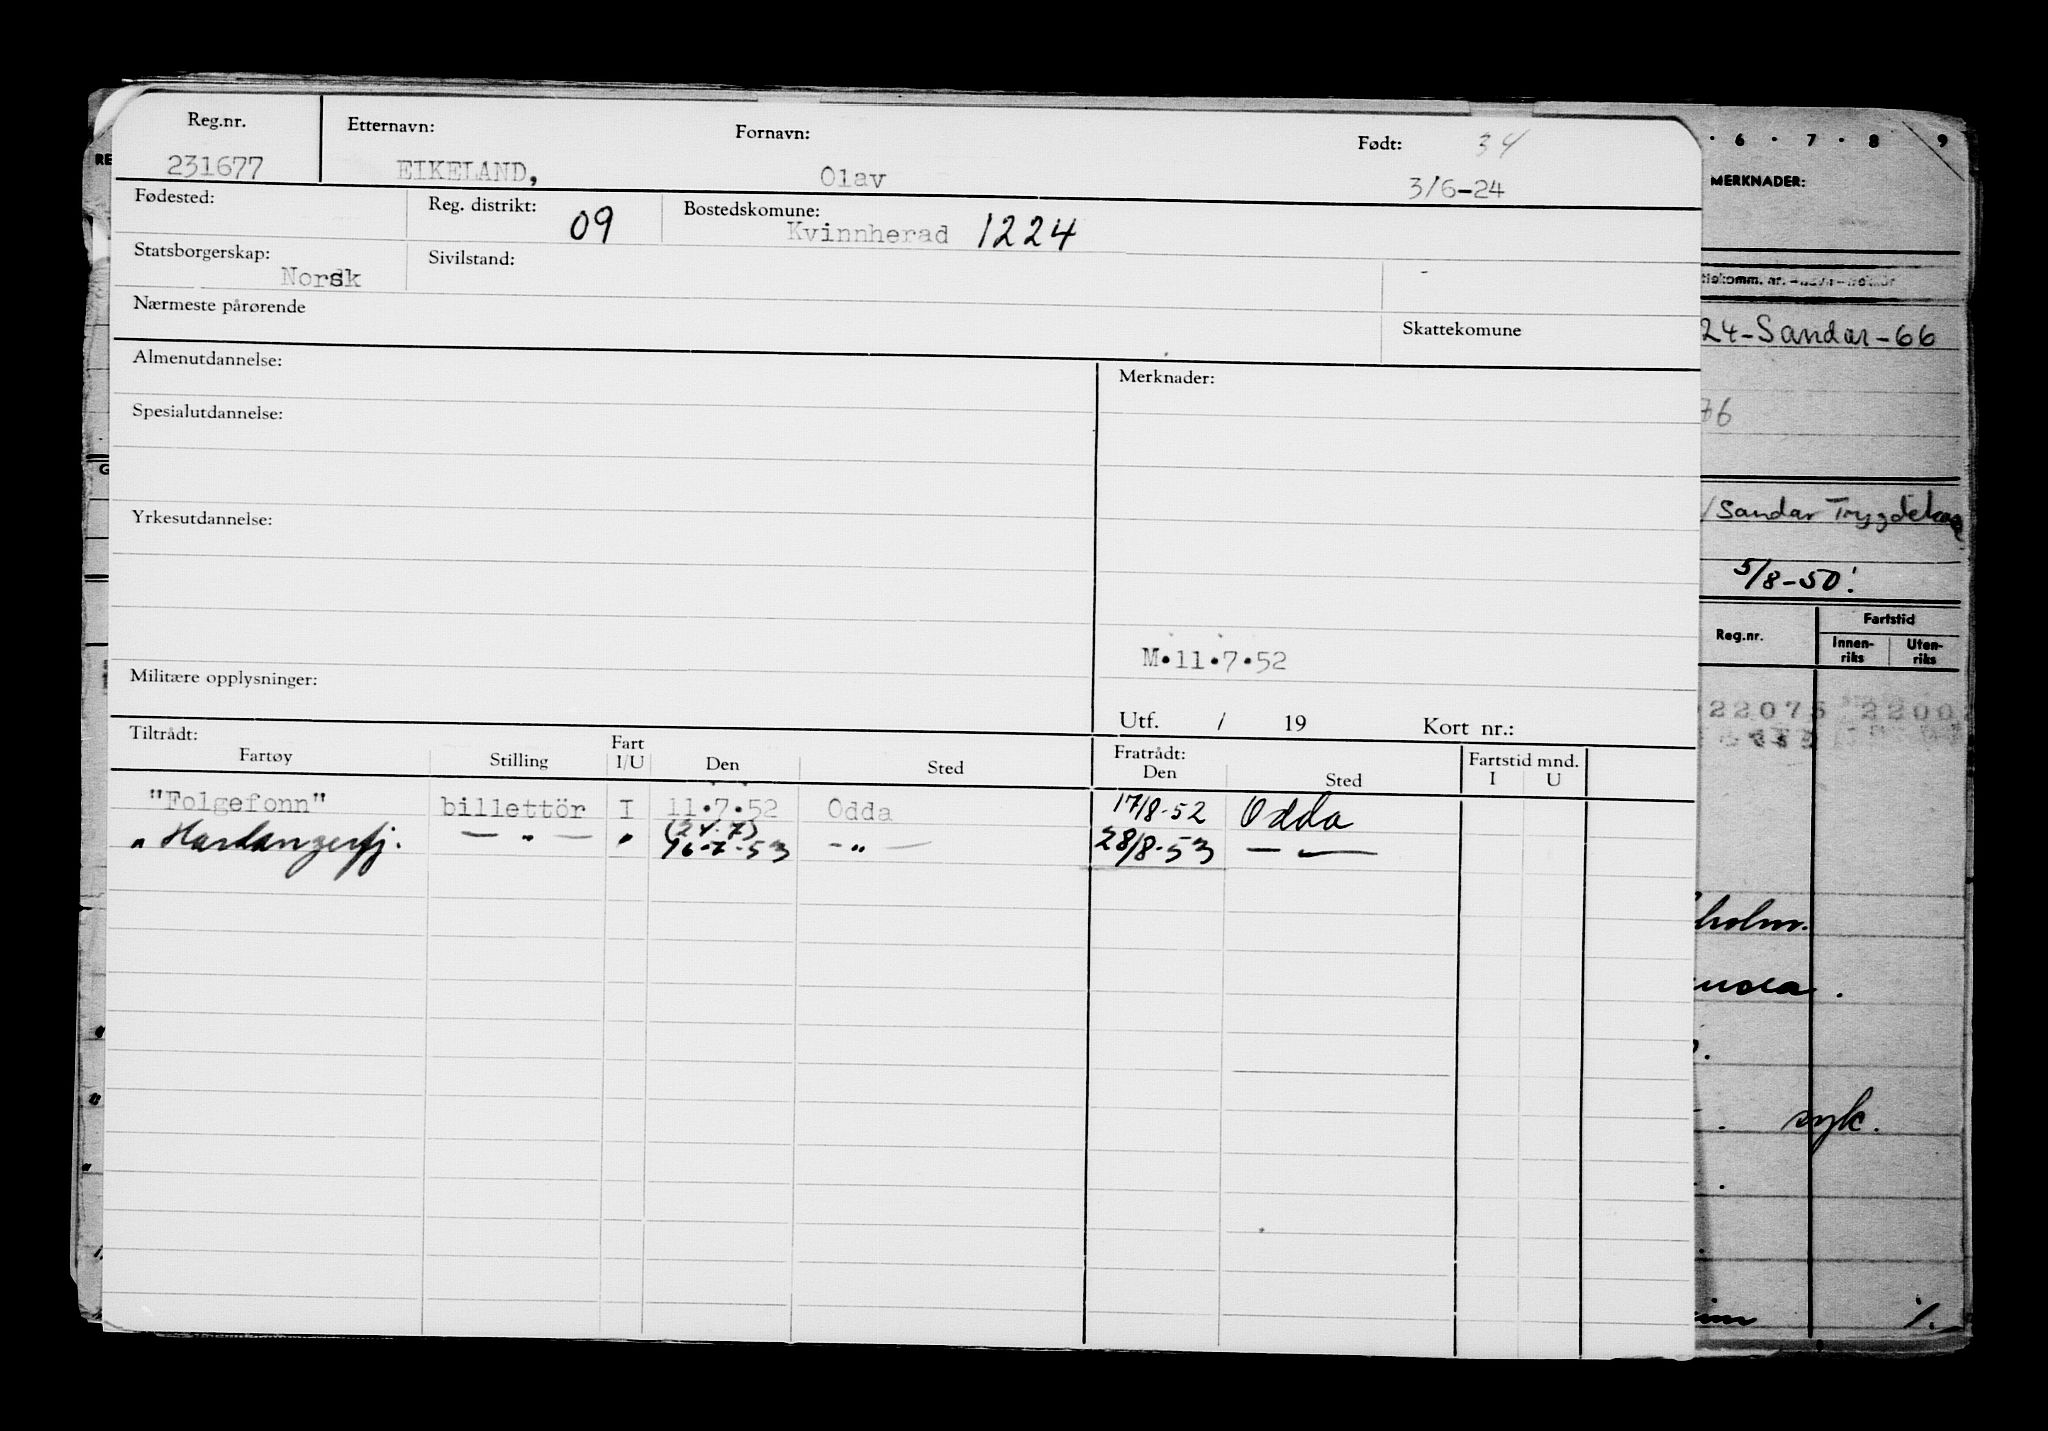 Reg.nr. Etternavn: Fornavn: Født: 34
231677 EIKELAND, Olav 3/6-24
Fødested: Reg. distrikt: 09 Bostedskomune: Kvinnherad 1224
Statsborgerskap: Norsk Sivilstand:
Nærmeste pårørende Skattekomune
Almenutdannelse: Merknader:
Spesialutdannelse:
Yrkesutdannelse:
M.11.7.52
Militære opplysninger:
Utf. / 19 Kort nr.:
Tiltrådt: Fratrådt:
Fartøy Stilling Fart I/U Den Sted Den Sted Fartstid mnd. I U
"Folgefonn" billettör I 11.7.52 Odda 17/8-52 Odda
(24.7)
" Hardangerfj. — " — " 16-7-53 - " — 28/8-53 — " —
6 · 7 · 8 9
MERKNADER:
24-Sandar-66
76
/Sandar
5/8-50!
Reg.nr. Fartstid
Innen-riks Uten-riks
22075
holm.
syk.